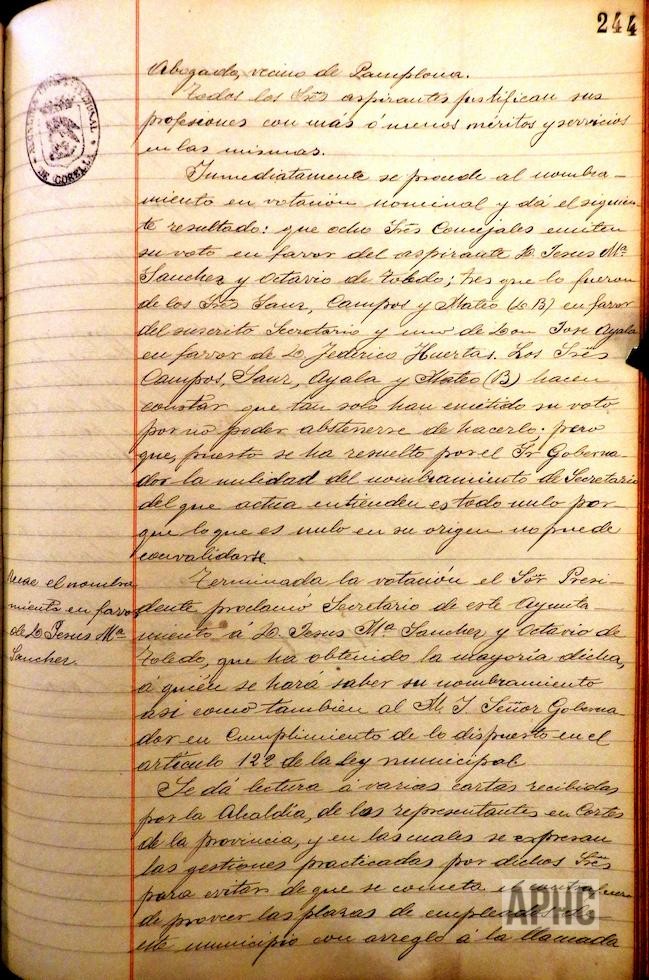 244
AYUNTAMIENTO CONSTITUCIONAL
DE CORELLA
Abogado, vecino de Pamplona.
Todos los Sres aspirantes justifican sus
profesiones con más ó menos méritos y servicios
en las mismas.
Inmediatamente se procede al nombra-
miento en votación nominal y dá el siguien-
te resultado: que ocho Sres Concejales emiten
su voto en favor del aspirante D. Jesus Mª
Sanchez y Octavio de Toledo; tres que lo fueron
de los Sres Sanz, Campos y Mateo (D B) en favor
del suscrito Secretario y uno de Don Jose Ayala
en favor de D. Federico Huertas. Los Sres
Campos, Sanz, Ayala y Mateo (B) hacen
constar que tan solo han emitido su voto
por no poder abstenerse de hacerlo; pero
que, puesto se ha resuelto por el Sr Goberna-
dor la nulidad del nombramiento de Secretario
del que actua entienden es todo nulo por-
que lo que es nulo en su origen no puede
convalidarse.
Recae el nombra
miento en favor
de D Jesus Mª
Sanchez.
Terminada la votación el Sor Presi-
dente proclamó Secretario de este Ayunta-
miento á D. Jesus Mª Sanchez y Octavio de
Toledo, que ha obtenido la mayoría dicha,
á quién se hará saber su nombramiento
asi como tambien al M. I. Señor Goberna-
dor en cumplimiento de lo dispuesto en el
artículo 122 de la Ley municipal.
Se dá lectura á varias cartas recibidas
por la Alcaldía, de los representantes en Cortes
de la provincia, y en las cuales se expresan
las gestiones practicadas por dichos Sres
para evitar de que se cometa el contrafuero
de proveer las plazas de empleados de
este municipio con arreglo á la llamada
APHC